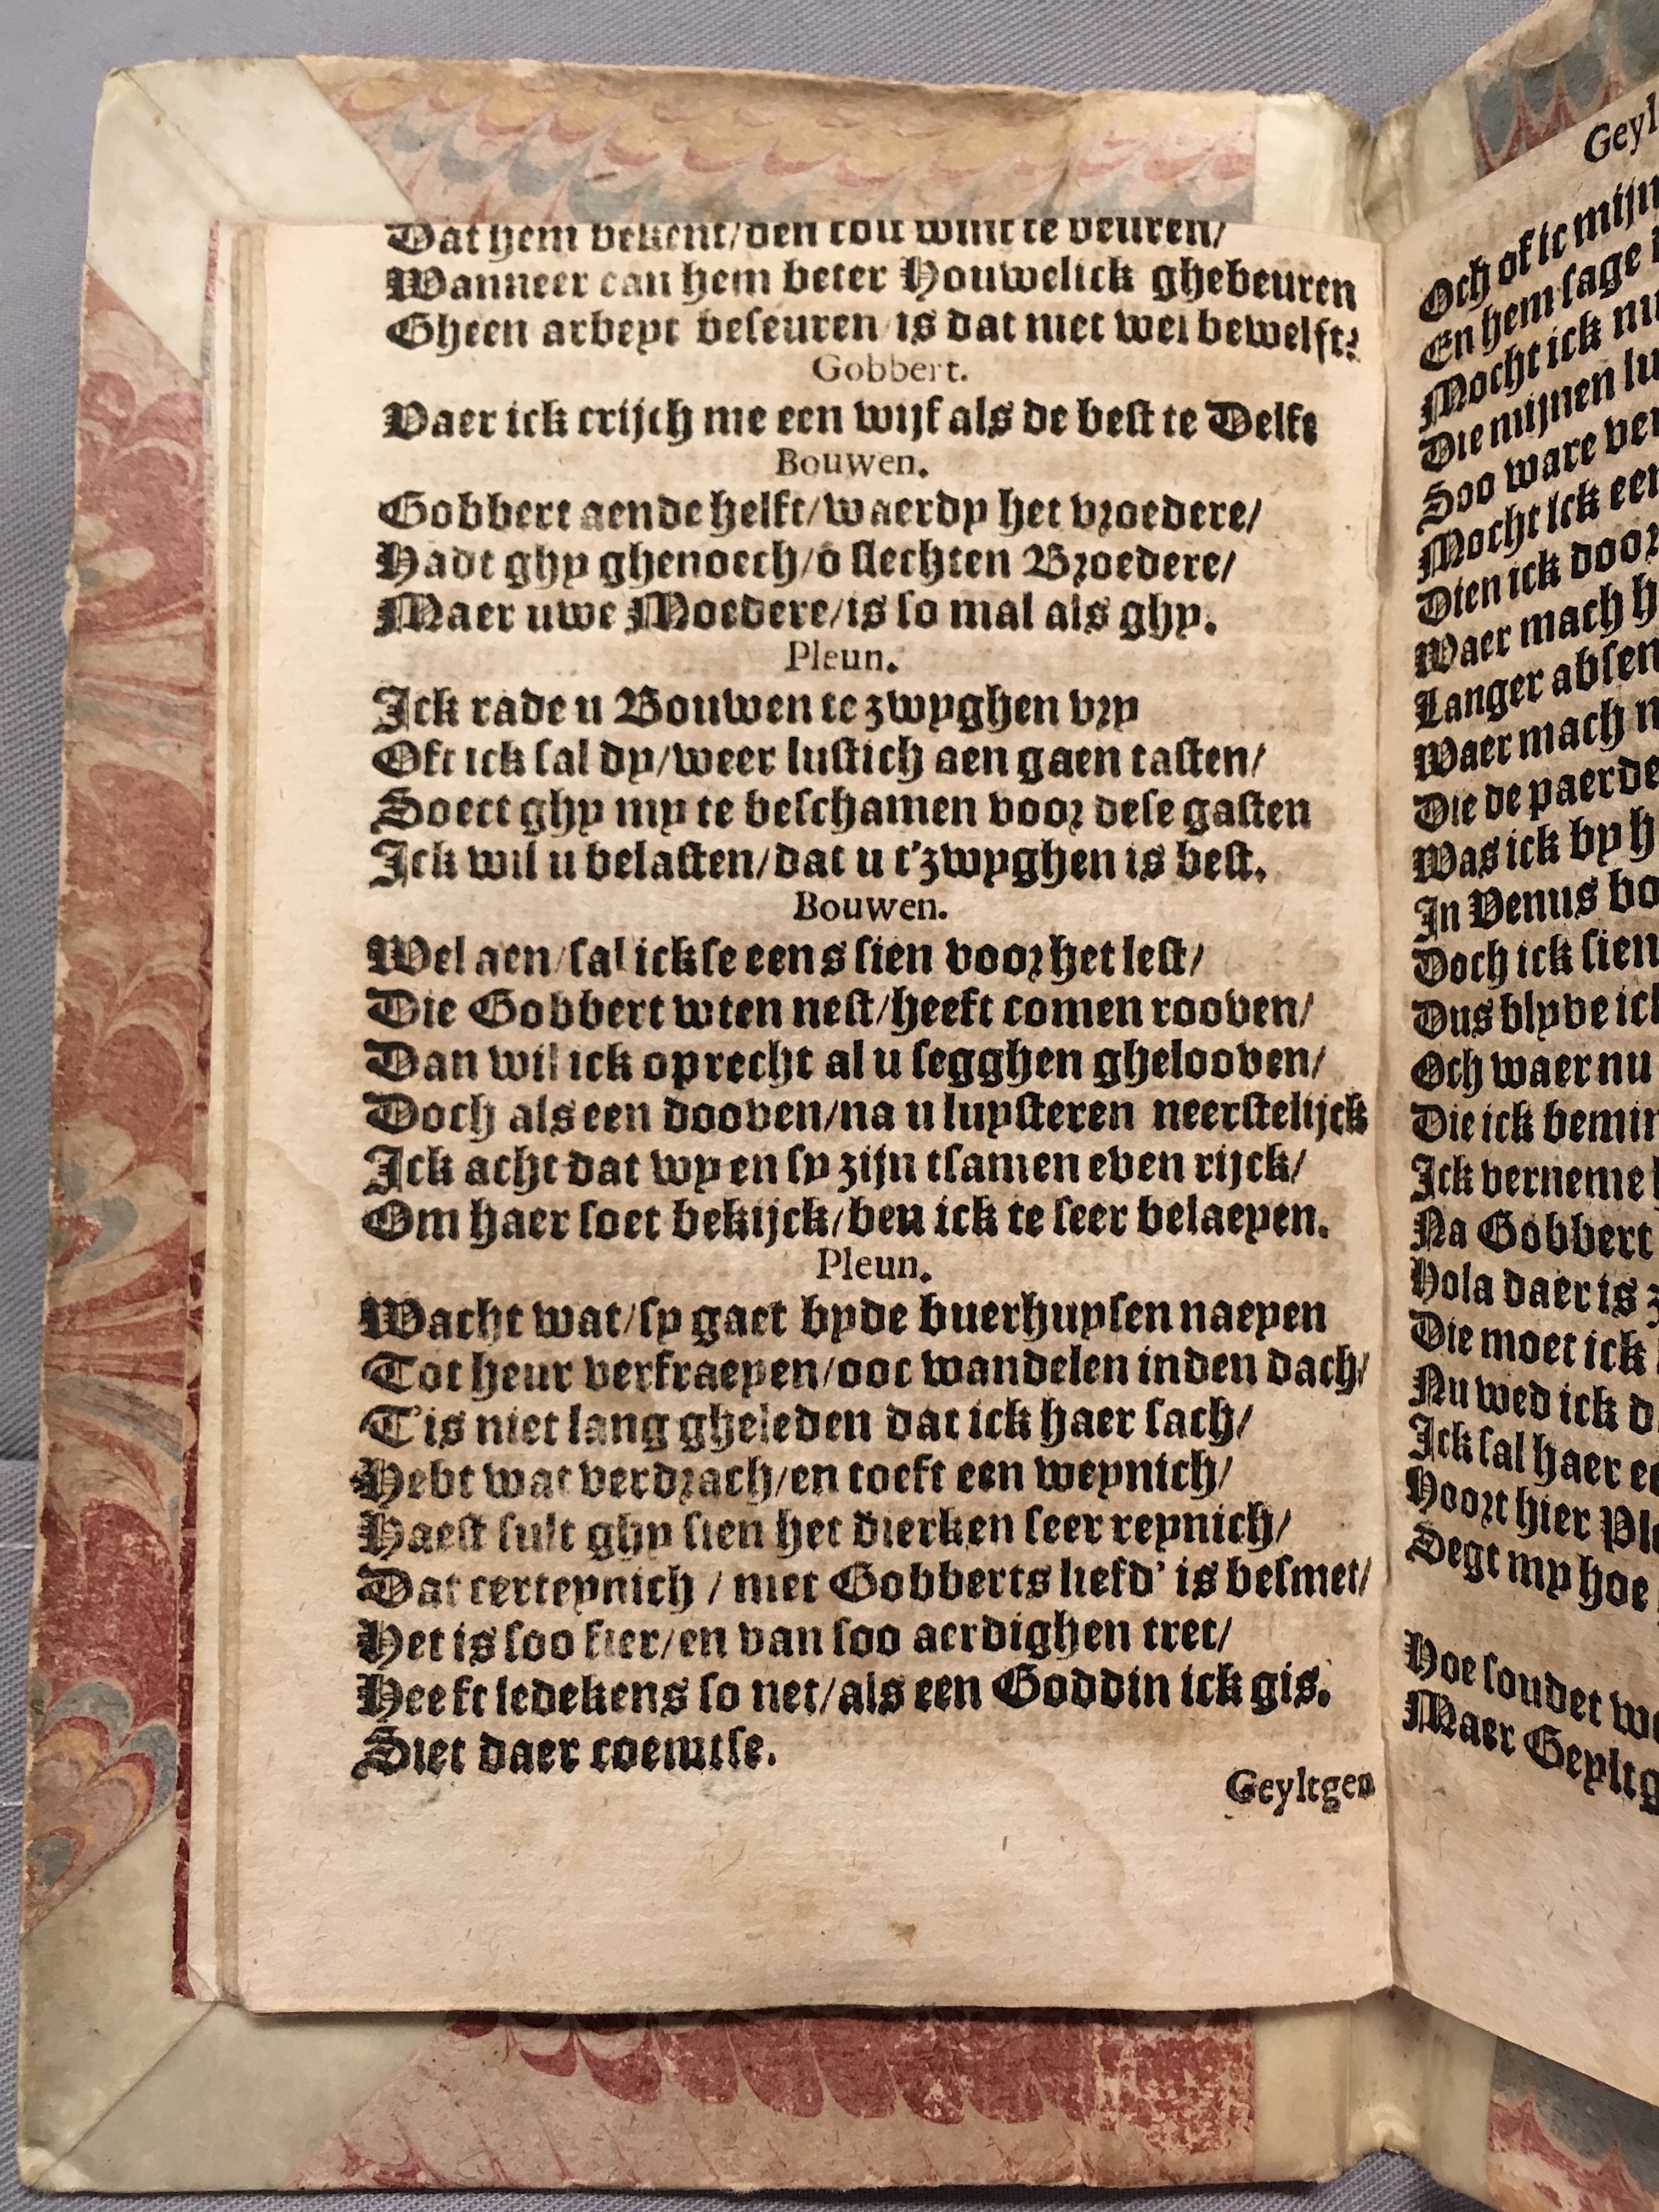 Dat hem bekent/den coii wint te beuren/
Wanneer can hem beter Houwelick ghebeuren
Gheen arbeyt beseuren/is dat niet wel bewelft?
Gobbert.
Vaer ick crijch me een wijf als de best te Delft
Bouwen.
Gobbert aende helft/waerdy het vroedere/
Hadt ghy ghenoech/o slechten Broedere/
Maer uwe Moedere/is so mal als ghy.
Pleun.
Ick rade u Bouwen te zwyghen vry
Oft ick sal dy/weer lustich aen gaen tasten/
Soect ghy my te beschamen voor dese gasten
Ick wil u belasten/dat u t'zwyghen is best.
Bouwen.
Wel aen/sal ickse eens sien voor het lest/
Die Gobbert wten nest/heeft comen rooven/
Dan wil ick oprecht al u segghen ghelooven/
Doch als een dooven/na u luysteren neerstelijck
Ick acht dat wy en sy zijn tsamen even rijck/
Om haer soet bekijck/ben ick te seer belaeyen.
Pleun.
Wacht wat/sy gaet byde buerhuysen naeyen
Tot heur verfraeyen/ooc wandelen inden dach/
Tis niet lang gheleden dat ick haer sach/
Hebt wat verdrach/en toeft een weynich/
Haest sult ghy sien het dierken seer reynich/
Dat certeynich / met Gobberts liefd' is besmet/
Het is soo fier/en van soo aerdighen tret/
Heeft ledekens so net/als een Goddin ick gis.
Siet daer coemtse.
Geyltgen
Geyl
Och of ic mijn
En hem sage
Mocht ick nu
Die mijnen lu
Soo ware ver
Mocht ick een
Dien ick door
Waer mach h
Langer absen
Waer mach n
Die de paerde
Was ick by h
In Venus bo
Doch ick sien
Dus blyve ick
Och waer nu
Die ick bemin
Ick verneme
Na Gobbert
Hola daer is z
Die moet ick
Nu wed ick d
Ick sal haer ee
Hoort hier Ple
Segt my hoe
Hoe soudet we
Maer Geyltg